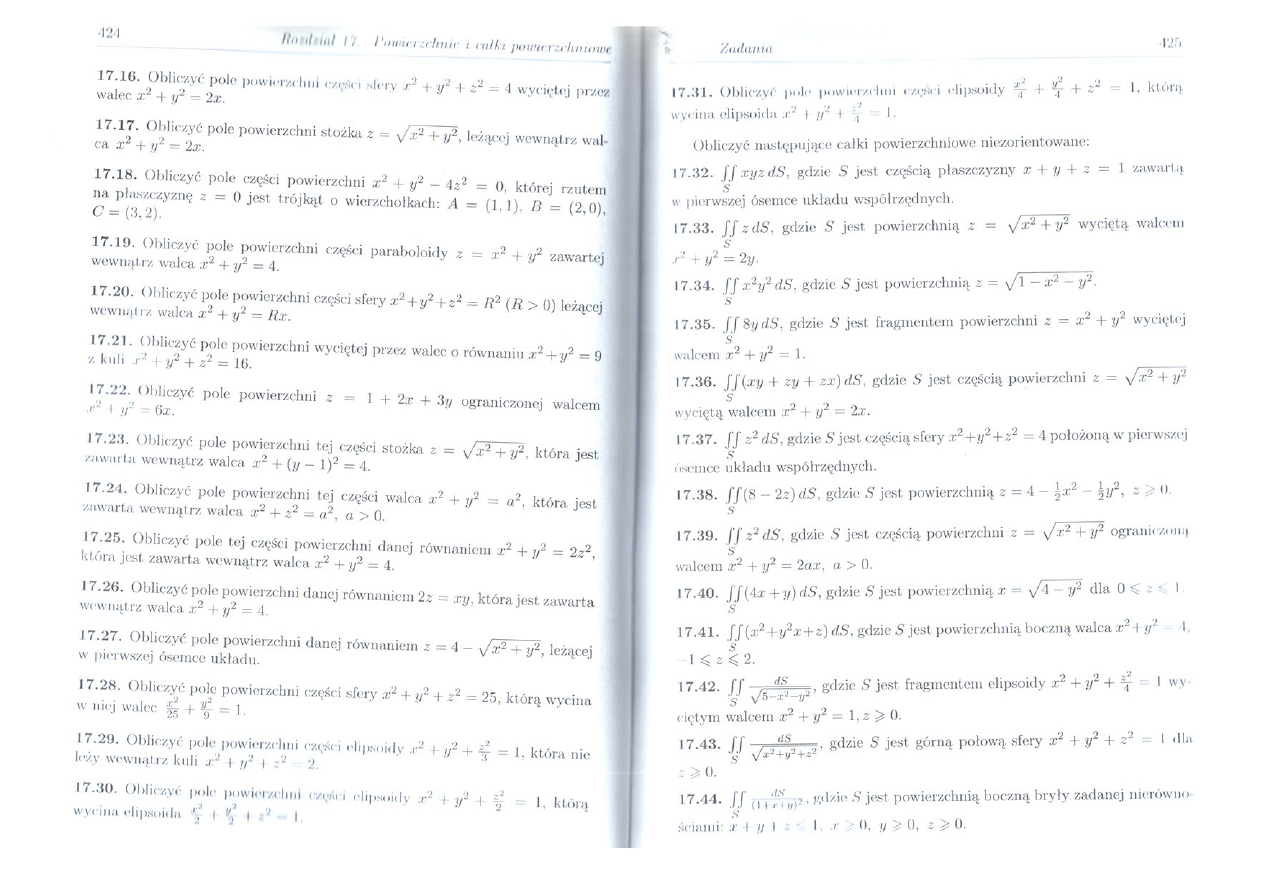 424
Rozdział 17. Powierzchnie i całki powierzchniowe
17.16. Obliczyć pole powierzchni części sfery x² + y² + z² = 4 wyciętej przez
walec x² + y² = 2x.
17.17. Obliczyć pole powierzchni stożka z = √(x² + y²), leżącej wewnątrz wal-
ca x² + y² = 2x.
17.18. Obliczyć pole części powierzchni x² + y² − 4z² = 0, której rzutem
na płaszczyznę z = 0 jest trójkąt o wierzchołkach: A = (1,1), B = (2,0),
C = (3,2).
17.19. Obliczyć pole powierzchni części paraboloidy z = x² + y² zawartej
wewnątrz walca x² + y² = 4.
17.20. Obliczyć pole powierzchni części sfery x²+y²+z² = R² (R > 0) leżącej
wewnątrz walca x² + y² = Rx.
17.21. Obliczyć pole powierzchni wyciętej przez walec o równaniu x²+y² = 9
z kuli x² + y² + z² = 16.
17.22. Obliczyć pole powierzchni z = 1 + 2x + 3y ograniczonej walcem
x² + y² = 6x.
17.23. Obliczyć pole powierzchni tej części stożka z = √(x² + y²), która jest
zawarta wewnątrz walca x² + (y − 1)² = 4.
17.24. Obliczyć pole powierzchni tej części walca x² + y² = a², która jest
zawarta wewnątrz walca x² + z² = a², a > 0.
17.25. Obliczyć pole tej części powierzchni danej równaniem x² + y² = 2z²,
która jest zawarta wewnątrz walca x² + y² = 4.
17.26. Obliczyć pole powierzchni danej równaniem 2z = xy, która jest zawarta
wewnątrz walca x² + y² = 4.
17.27. Obliczyć pole powierzchni danej równaniem z = 4 − √(x² + y²), leżącej
w pierwszej ósemce układu.
17.28. Obliczyć pole powierzchni części sfery x² + y² + z² = 25, którą wycina
w niej walec x²/25 + y²/9 = 1.
17.29. Obliczyć pole powierzchni części elipsoidy x² + y² + z²/3 = 1, która nie
leży wewnątrz kuli x² + y² + z² = 2.
17.30. Obliczyć pole powierzchni części elipsoidy x² + y² + z²/2 = 1, którą
wycina elipsoida x²/2 + y²/2 + z² = 1.
Zadania
425
17.31. Obliczyć pole powierzchni części elipsoidy x²/4 + y²/4 + z² = 1, którą
wycina elipsoida x² + y² + z²/4 = 1.
Obliczyć następujące całki powierzchniowe niezorientowane:
17.32. ∬_S xyz dS, gdzie S jest częścią płaszczyzny x + y + z = 1 zawartą
w pierwszej ósemce układu współrzędnych.
17.33. ∬_S z dS, gdzie S jest powierzchnią z = √(x² + y²) wyciętą walcem
x² + y² = 2y.
17.34. ∬_S x²y² dS, gdzie S jest powierzchnią z = √(1 − x² − y²).
17.35. ∬_S 8y dS, gdzie S jest fragmentem powierzchni z = x² + y² wyciętej
walcem x² + y² = 1.
17.36. ∬_S (xy + zy + zx) dS, gdzie S jest częścią powierzchni z = √(x² + y²)
wyciętą walcem x² + y² = 2x.
17.37. ∬_S z² dS, gdzie S jest częścią sfery x²+y²+z² = 4 położoną w pierwszej
ósemce układu współrzędnych.
17.38. ∬_S (8 − 2z) dS, gdzie S jest powierzchnią z = 4 − ½x² − ½y², z ⩾ 0.
17.39. ∬_S z² dS, gdzie S jest częścią powierzchni z = √(x² + y²) ograniczoną
walcem x² + y² = 2ax, a > 0.
17.40. ∬_S (4x + y) dS, gdzie S jest powierzchnią x = √(4 − y²) dla 0 ⩽ z ⩽ 1.
17.41. ∬_S (x²+y²x+z) dS, gdzie S jest powierzchnią boczną walca x²+y² = 4,
−1 ⩽ z ⩽ 2.
17.42. ∬_S dS/√(5−x²−y²), gdzie S jest fragmentem elipsoidy x² + y² + z²/4 = 1 wy-
ciętym walcem x² + y² = 1, z ⩾ 0.
17.43. ∬_S dS/√(x²+y²+z²), gdzie S jest górną połową sfery x² + y² + z² = 1 dla
z ⩾ 0.
17.44. ∬_S dS/(1+x+y)², gdzie S jest powierzchnią boczną bryły zadanej nierówno-
ściami: x + y + z ⩽ 1, x ⩾ 0, y ⩾ 0, z ⩾ 0.